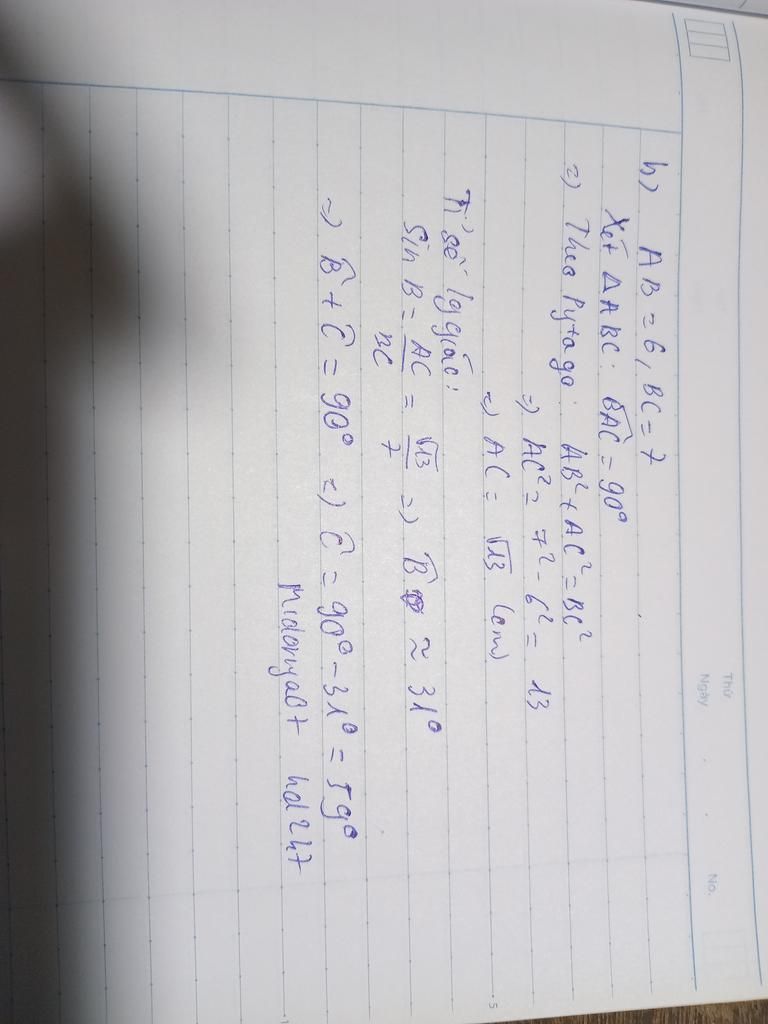 Thứ
Ngày
No.
b) AB = 6, BC = 7
Xét ΔABC: B̂AC = 90°
=) Theo Pytago: AB² + AC² = BC²
=) AC² = 7² - 6² = 13
=) AC = √13 (cm)
Tỉ số lg giác:
Sin B = AC/BC = √13/7 =) B̂ ≈ 31°
=) B̂ + Ĉ = 90° =) Ĉ = 90° - 31° = 59°
hd247